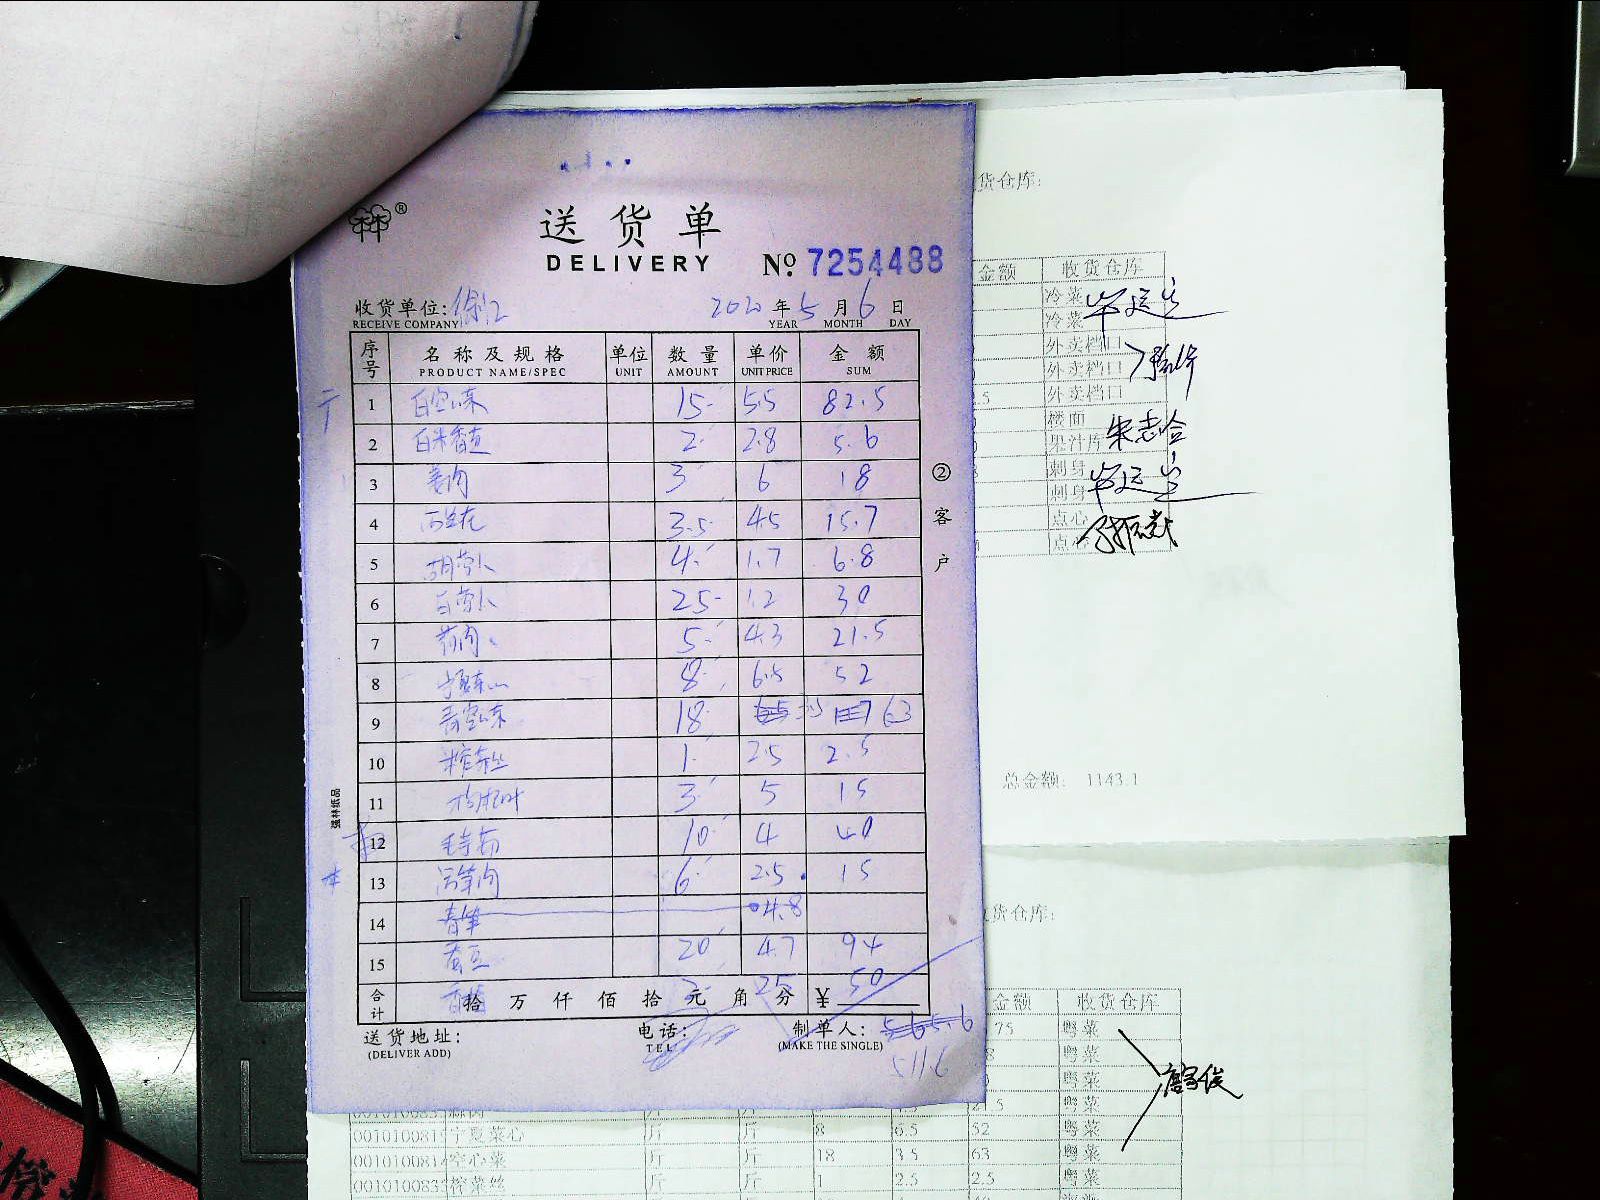 送货单
DELIVERY № 7254488
收货单位: 徐汇 2020年5月6日
RECEIVE COMPANY YEAR MONTH DAY
序号 名称及规格 单位 数量 单价 金额
PRODUCT NAME/SPEC UNIT AMOUNT UNIT PRICE SUM
1 白空心菜 15 5.5 82.5
2 白米香 2 2.8 5.6
3 姜肉 3 6 18
4 西兰花 3.5 4.5 15.7
5 胡萝卜 4 1.7 6.8
6 白萝卜 25 1.2 30
7 蒜肉 5 4.3 21.5
8 宁夏菜心 8 6.5 52
9 青空心菜 18 3.5 63
10 榨菜丝 1 2.5 2.5
11 3 5 15
12 毛芋艿 10 4 40
13 莴笋肉 6 2.5 15
14 青笋 4.8
15 蚕豆 20 4.7 94
2 25 50
合计 拾万仟佰拾元角分 ¥
送货地址: 电话: 制单人: 565.6
(DELIVER ADD) TEL (MAKE THE SINGLE)
511.6
②客户
强林纸品
货仓库:
金额 收货仓库
冷菜
冷菜
外卖档口
外卖档口
.5 外卖档口
楼面
果汁库 朱志
刺身
刺身
点心
点心
总金额: 1143.1
收货仓库:
金额 收货仓库
75 粤菜
粤菜
粤菜
斤 斤 21.5 粤菜
宁夏菜心 斤 斤 8 6.5 52 粤菜
空心菜 斤 斤 18 3.5 63 粤菜
榨菜丝 斤 斤 1 2.5 2.5 粤菜